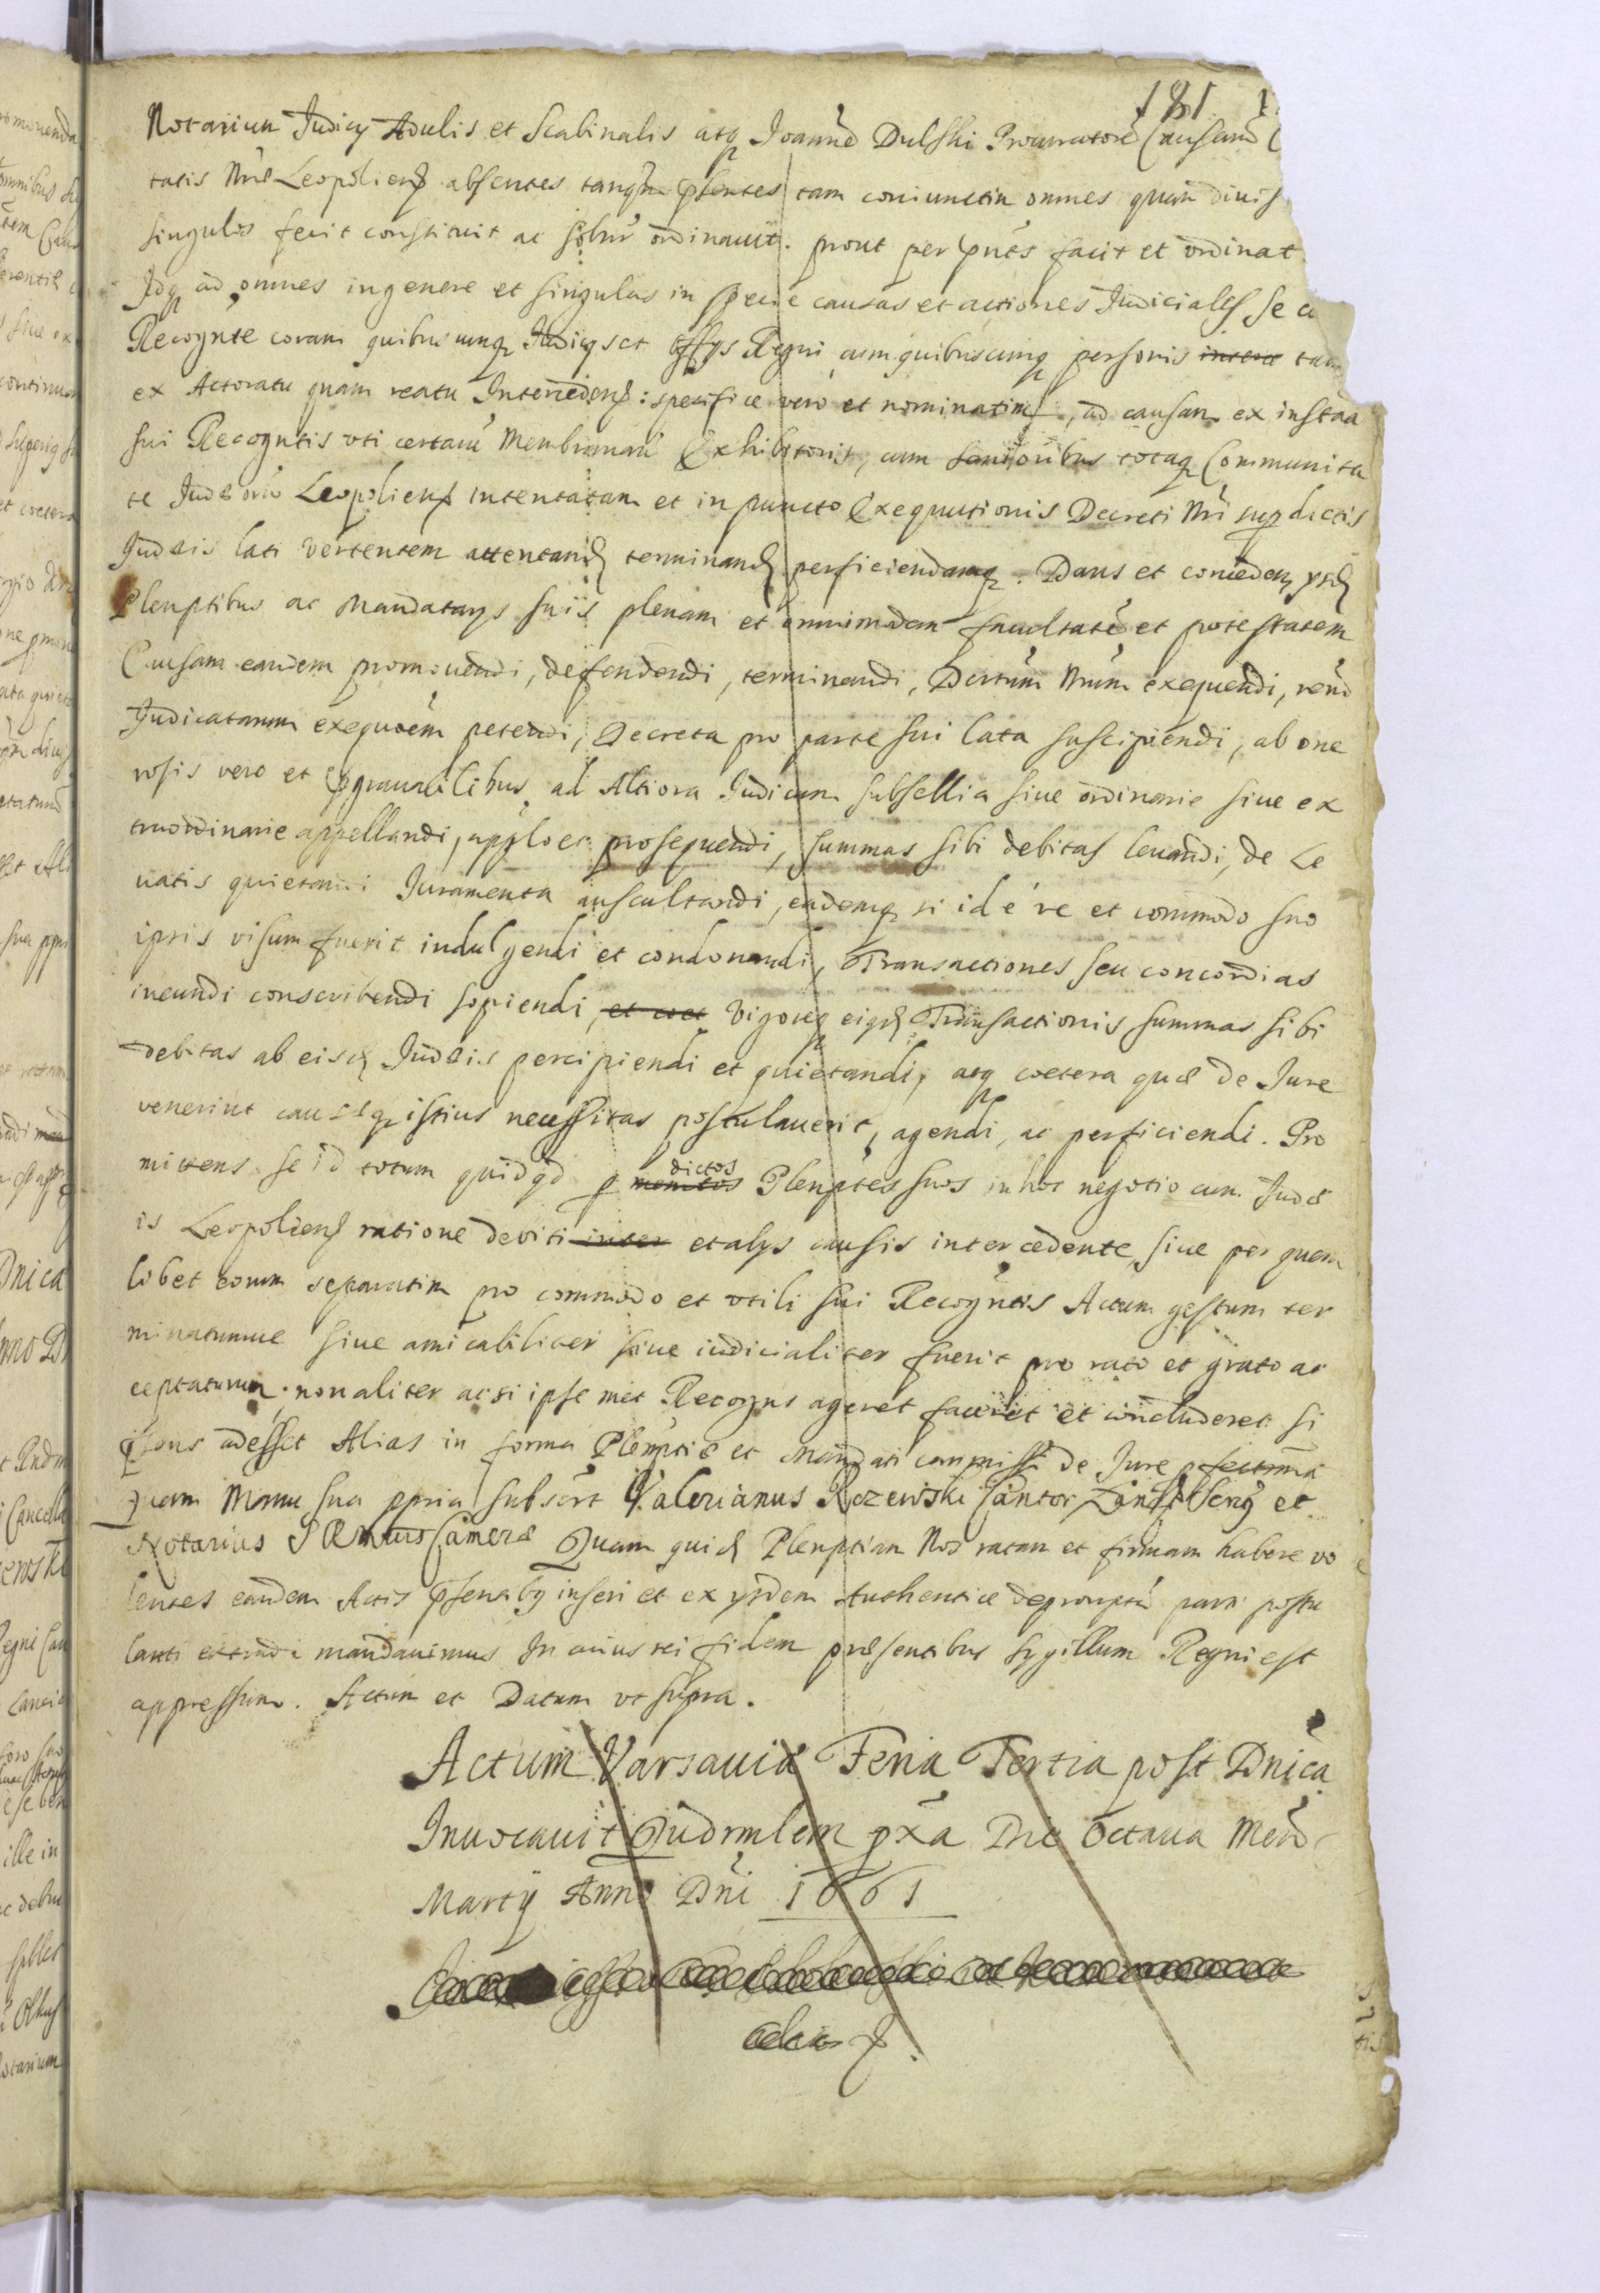 181
Notarium Judicy Advlis et Scabinalis atq Joanne Dulski Procuratore Causaru C
tatis Nrae Leopolien absentes tanqm pssentes tam coniunctim omnes quam diuis
singulos fecit constituit ac solnr ordinauit. prout per pntes facit et ordinat
Idq ad omnes in genere et singulas in specie causas et actiones Judiciales se c
Recognte coram quibusuunq Judicys et Offys Regni cum quibuscunq personis tam
ex Actoratu quam reatu Interceden: specifice vero et nominatim, ad causam ex instan
sui Recogntis vti certaru Membranaru Exhibitoris, cum Senioribus totaq Communita
te Judaeoru Leopolien intentatam et in puncto Exequutionis Decreti Nri supdictis
Judaeis lati vertentem attentand terminand perficiendamq. Dans et conceden ysd
Plenptibus ac Mandatarys suis plenam et omnimodam facultate et potestatem
Causam eandem promouendi, defendendi, terminandi, Dcrtum Nrum exequendi, reru
Judicatarum exequoem petendi, Decreta pro parte sui lata suscipiendi, ab one
rosis vero et pgrauatilibus ad Altiora Judicum subsellia siue ordinarie siue ex
traordinarie appellandi, apploes prosequendi, summas sibi debitas leuandi, de Le
uatis quietandi Juramenta auscultandi, eademq si id e re et commodo suo
ipsis visum fuerit indulgendi et condonandi, Transactiones seu concordias
ineundi conscribendi sopiendi, et coet vigoreq eiusd Transactionis summas sibi
debitas ab eisd Judaeis percipiendi et quietandi, atq coetera quae de Jure
venerint causaeq istius necessitas postulauerit, agendi, ac perficiendi. Pro
mittens se id totum quidqd p dictos Plenptes suos in hoc negotio cum Judae
is Leopolien ratione debiti inter et alys causis intercedente, siue per quem
libet eorum separatim pro commodo et vtili sui Recogntis Actum gestum ter
minatumue siue amicabiliter siue iudicialiter fuerit pro rato et grato ac
ceptaturum. non aliter ac si ipse met Recogns ageret faceret et concluderet si
psens adesset Alias in forma Plenptiae et Mandati de Jure
Quam Manu sua ppria subscrt Valerianus Rozewski Cantor et
Notarius Camerae Quam quid Plenptiam Nos ratam et firmam habere vo
lentes eandem Actis psentiby inseri et ex ysdem Authentice depromptu parti postu
lanti extradi mandauimus In cuius rei fidem praesentibus Sygillum Regni est
appressum. Actum et Datum vt supra.
Actum Varsauiae Feria Tertia post Dnica
Inuocauit Qudrmlem pxa Die Octaua Mens
Marty Anno Dni 1661